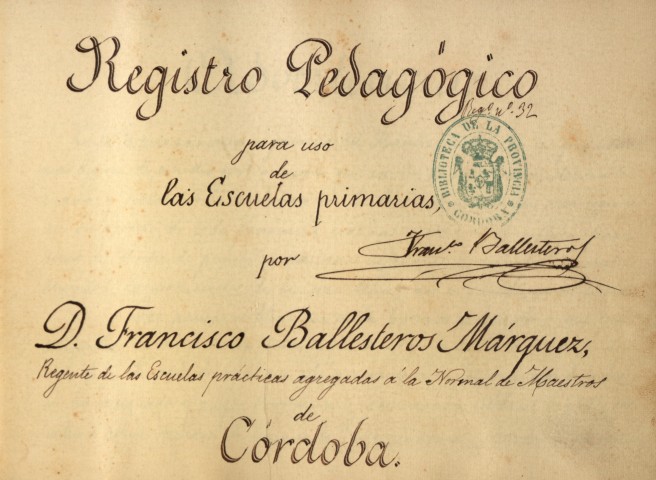 Registro Pedagógico
Reg.º nº. 32
para uso
de
las Escuelas primarias,
BIBLIOTECA DE LA PROVINCIA
CORDOBA
por
Franco. Ballesteros
D. Francisco Ballesteros Márquez,
Regente de las Escuelas prácticas agregadas á la Normal de Maestros
de
Córdoba.